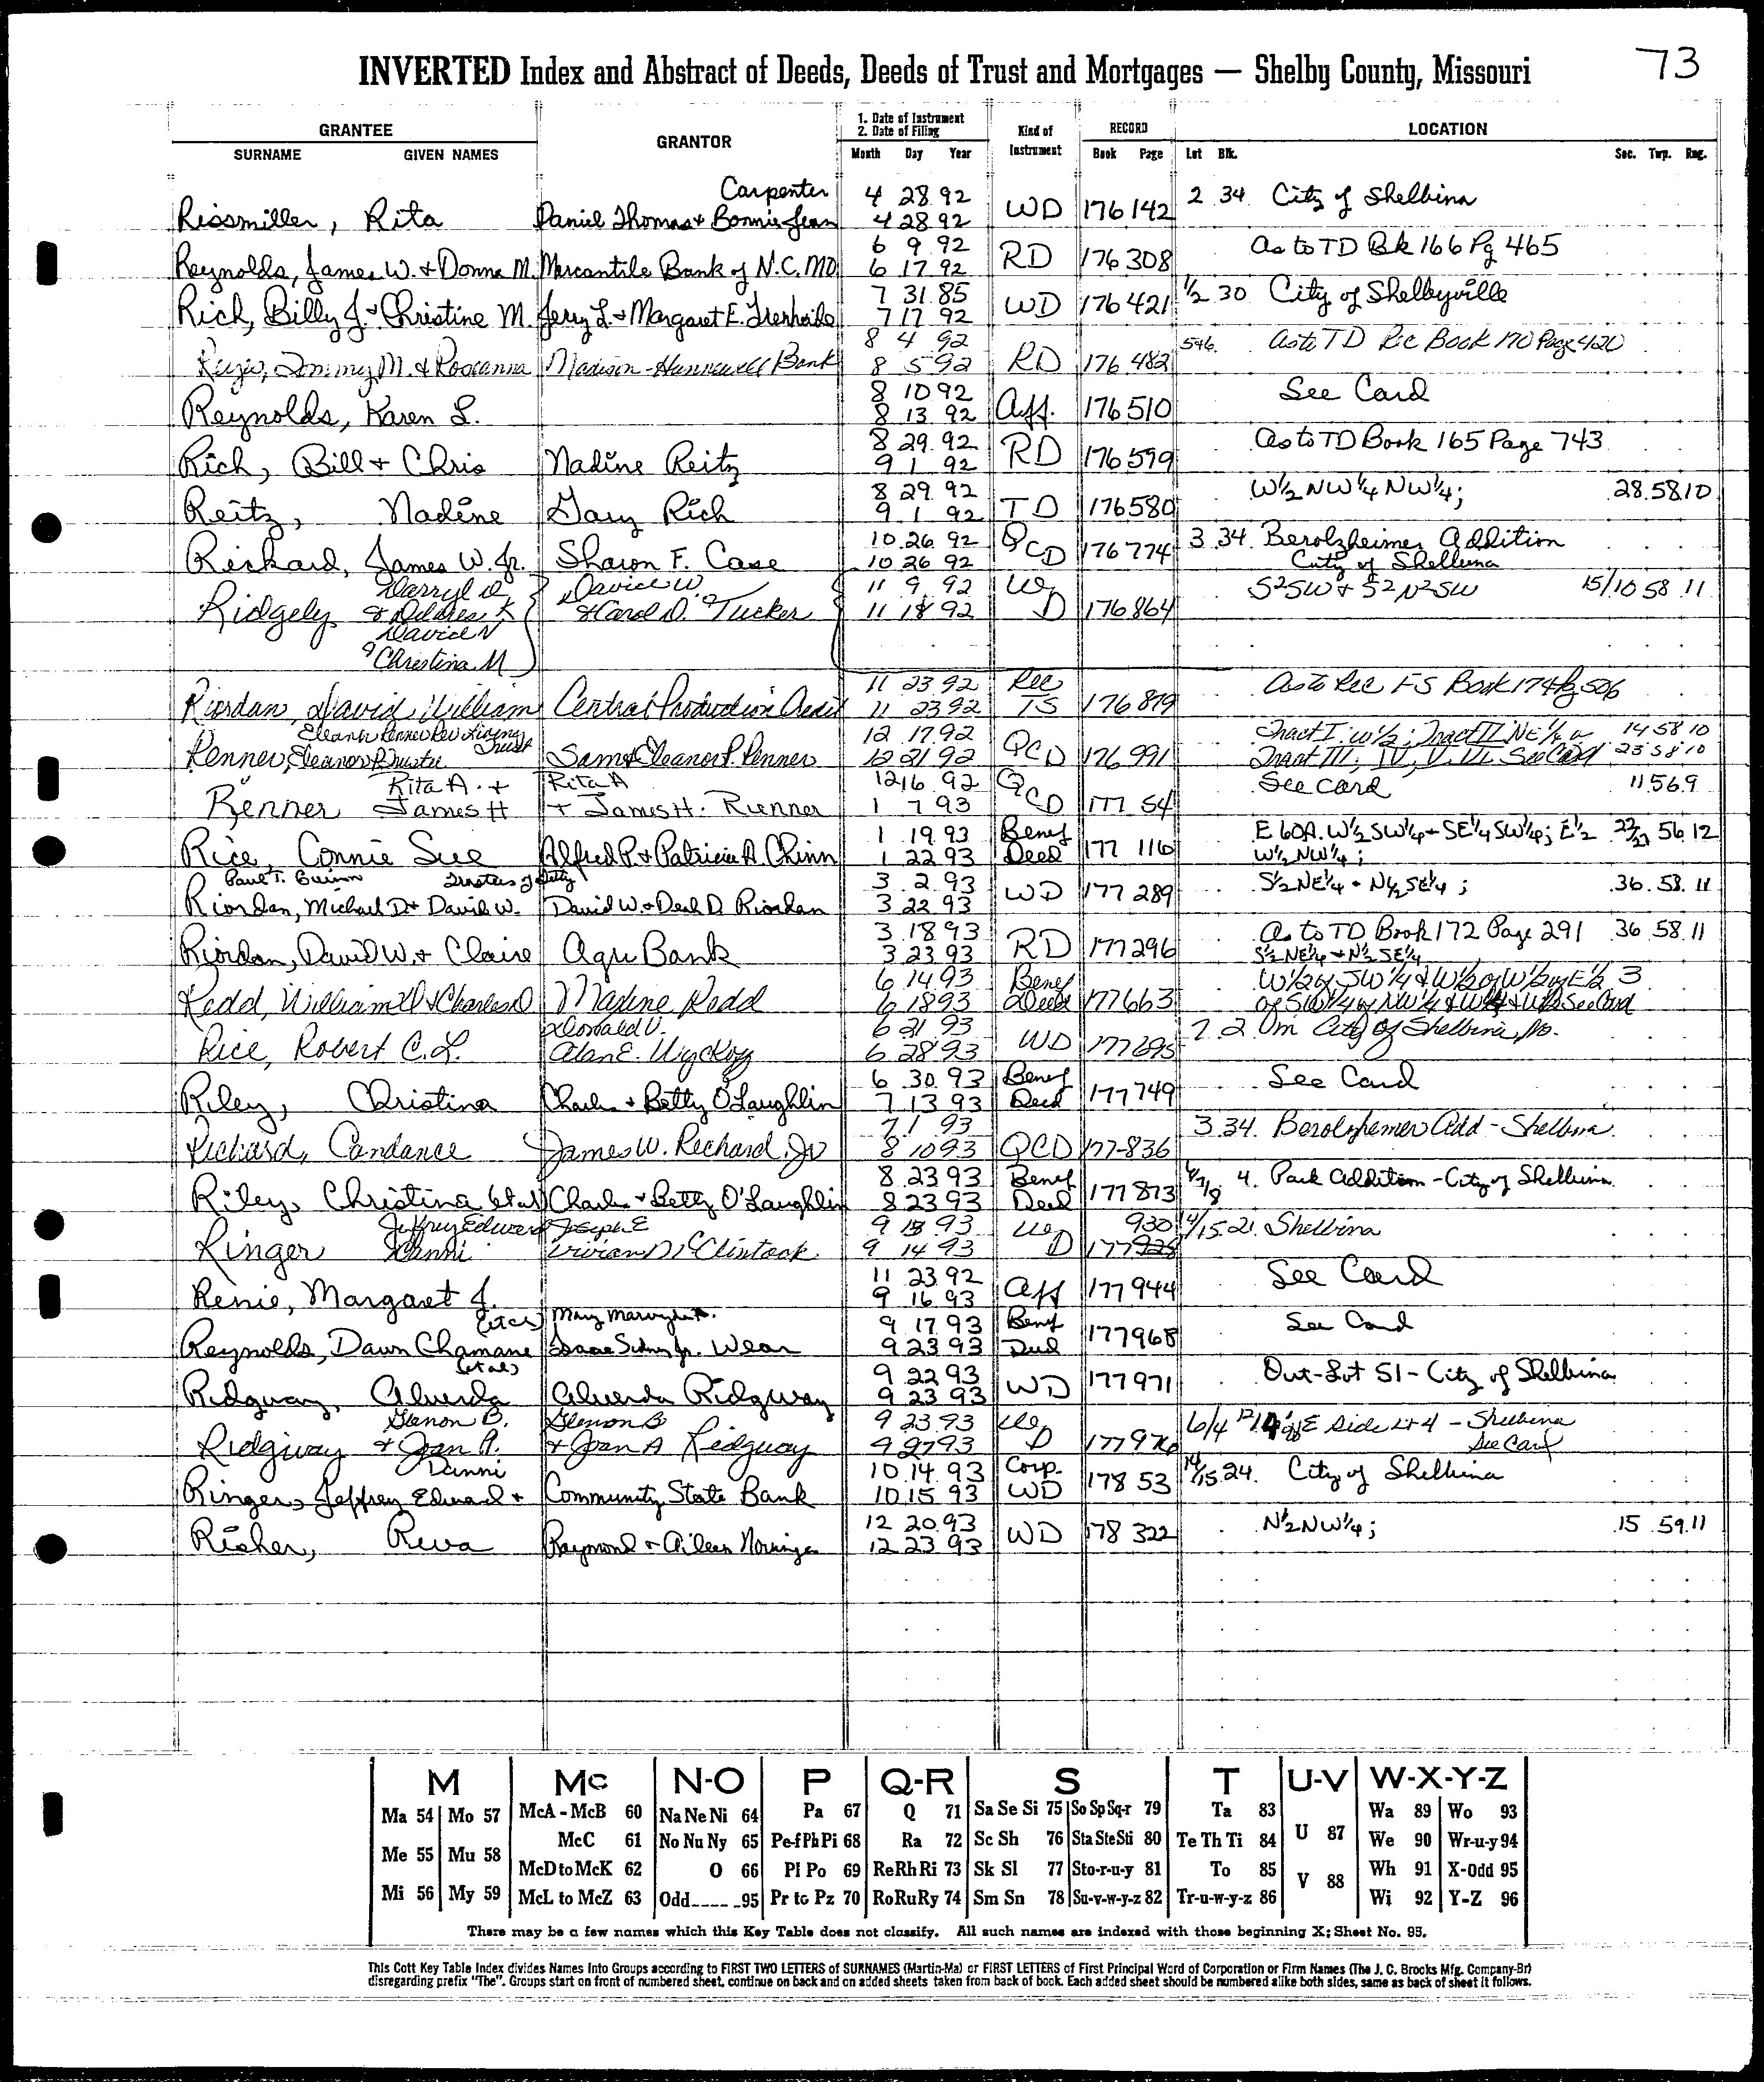 73
INVERTED Index and Abstract of Deeds, Deeds of Trust and Mortgages — Shelby County, Missouri
GRANTEE GRANTOR 1. Date of Instrument 2. Date of Filing Kind of Instrument RECORD LOCATION
SURNAME GIVEN NAMES Month Day Year Book Page Lot Blk. Sec. Twp. Rng.
Carpenter 4 28 92 2 34 City of Shelbina
Rissmiller, Rita Daniel Thomas + Bonnie Jean 4 28 92 WD 176 142
6 9 92 As to TD Bk 166 Pg 465
Reynolds, James W. + Donna M. Mercantile Bank of N.C. MO 6 17 92 RD 176 308
7 31 85 1/2 30 City of Shelbyville
Rich, Billy J. + Christine M. Jerry L. + Margaret E. 7 17 92 WD 176 421
8 4 92 As to TD Rec Book 170 Page 420
M. & Roseanna Madison-Hunnewell Bank 8 5 92 RD 176 482
8 10 92 See Card
Reynolds, Karen L. 8 13 92 Aff. 176 510
8 29 92 As to TD Book 165 Page 743
Rich, Bill + Chris Nadine Reitz 9 1 92 RD 176 579
8 29 92 W½ NW¼ NW¼; 28 58 10
Reitz, Nadine Gary Rich 9 1 92 TD 176 580
10 26 92 3 34 Berolzheimer Addition
Rickard, James W. Jr. Sharon F. Case 10 26 92 QCD 176 774 City of Shelbina
Darryl D. David W. 11 9 92 W S2SW + S2N2SW 15/10 58 11
Ridgely & Delores K & Carol D. Tucker 11 18 92 D 176 864
David N
& Christina M
11 23 92 Rec As to Rec FS Book 174 Pg 506
Riordan, David William Central Production Credit 11 23 92 176 879
Eleanor Penner Rev Living Trust 12 17 92 Tract I: W½; Tract II NE¼ 14 58 10
Penner, Eleanor P. Trustee Sam & Eleanor P. Penner 12 21 92 QCD 176 991 Tract III, IV, V, VI See Card 23 58 10
Rita A. + Rita A 12 16 92 Q See card 11 56 9
Renner James H + James H. Renner 1 7 93 CD 177 54
1 19 93 Benef E 60A. W½ SW¼ + SE¼ SW¼; E½ 56 12
Rice, Connie Sue Alfred P. + Patricia A. Chinn 1 22 93 Deed 177 116 W½ NW¼;
Paul T. Trustees of 3 2 93 S½ NE¼ + N½ SE¼; 36 58 11
Riordan, Michael D + David W. David W. + D. Riordan 3 22 93 WD 177 289
3 18 93 As to TD Book 172 Page 291 36 58 11
Riordan, David W. + Claire Agri Bank 3 23 93 RD 177 296 S½ NE¼ + N½ SE¼
6 14 93 Benef W½ of SW¼ & W½ of W½ of E½ 3
Redd, William D & Charles D Nadine Redd 6 18 93 Deed 177 663 of SW¼ of NW¼ & See Card
Donald V. 6 21 93 7 2 City of Shelbina, Mo.
Rice, Robert C. L. Alan E. Wyckoff 6 28 93 WD 177 695
6 30 93 Benef See Card
Riley, Christina Charles + Betty O'Laughlin 7 13 93 Deed 177 749
7 1 93 3 34 Berolzhemer Add - Shelbina
Richard, Candance James W. Rechard, Jr 8 10 93 QCD 177-836
8 23 93 Benef 4 Park Addition - City of Shelbina
Riley, Christina et al Charles + Betty O'Laughlin 8 23 93 Deed 177 873
Jeffrey Edward Joseph E 9 13 93 W 930 21 Shelbina
Ringer Danni Vivian D McClintock 9 14 93 D 177
11 23 92 See Card
Renie, Margaret J. 9 16 93 Aff 177 944
(et al) Mary 9 17 93 Benef See Card
Reynolds, Dawn Chamane Isaac Sidney Jr. Wear 9 23 93 Deed 177 968
(et al) 9 22 93 Out-Lot 51 - City of Shelbina
Ridgway, Alverda Alverda Ridgway 9 23 93 WD 177 971
Glenon B. Glenon B 9 23 93 W 6/4 E Side Lt 4 - Shelbina
Ridgway & Joan A. & Joan A Ridgway 9 27 93 D 177 976 See Card
Danni 10 14 93 Corp. 14/15 24 City of Shelbina
Ringer, Jeffrey Edward + Community State Bank 10 15 93 WD 178 53
12 20 93 N½ NW¼; 15 59 11
Risher, Reva Raymond + Aileen 12 23 93 WD 178 322
M Mc N-O P Q-R S T U-V W-X-Y-Z
Ma 54 Mo 57 McA - McB 60 Na Ne Ni 64 Pa 67 Q 71 Sa Se Si 75 So Sp Sq-r 79 Ta 83 U 87 Wa 89 Wo 93
Me 55 Mu 58 McC 61 No Nu Ny 65 Pe-f Ph Pi 68 Ra 72 Sc Sh 76 Sta Ste Sti 80 Te Th Ti 84 We 90 Wr-u-y 94
McD to McK 62 O 66 Pl Po 69 Re Rh Ri 73 Sk Sl 77 Sto-r-u-y 81 To 85 V 88 Wh 91 X-Odd 95
Mi 56 My 59 McL to McZ 63 Odd 95 Pr to Pz 70 Ro Ru Ry 74 Sm Sn 78 Su-v-w-y-z 82 Tr-u-w-y-z 86 Wi 92 Y-Z 96
There may be a few names which this Key Table does not classify. All such names are indexed with those beginning X; Sheet No. 95.
This Cott Key Table Index divides Names Into Groups according to FIRST TWO LETTERS of SURNAMES (Martin-Ma) or FIRST LETTERS of First Principal Word of Corporation or Firm Names (The J. C. Brooks Mfg. Company-Br)
disregarding prefix "The". Groups start on front of numbered sheet, continue on back and on added sheets taken from back of book. Each added sheet should be numbered alike both sides, same as back of sheet it follows.